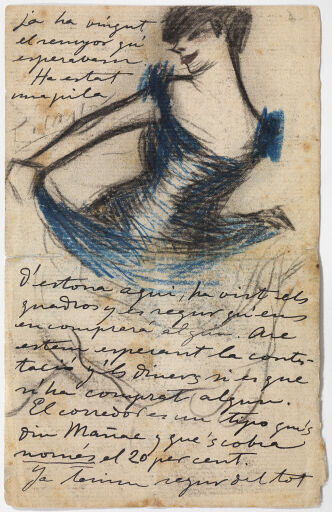 ja ha vingut
el senyor qu
esperabem
Ha estat
una pila
d'estona aqui, ha vist els
quadros y es segur qu'ens
en comprera algun. Are
estem esperant la contes-
tació y'ls diners si es que
n'ha comprat algun.
El corredor es un tipo qu's
diu Mañac y que's cobra
nomes el 20 per cent.
Ja tenim segur del tot